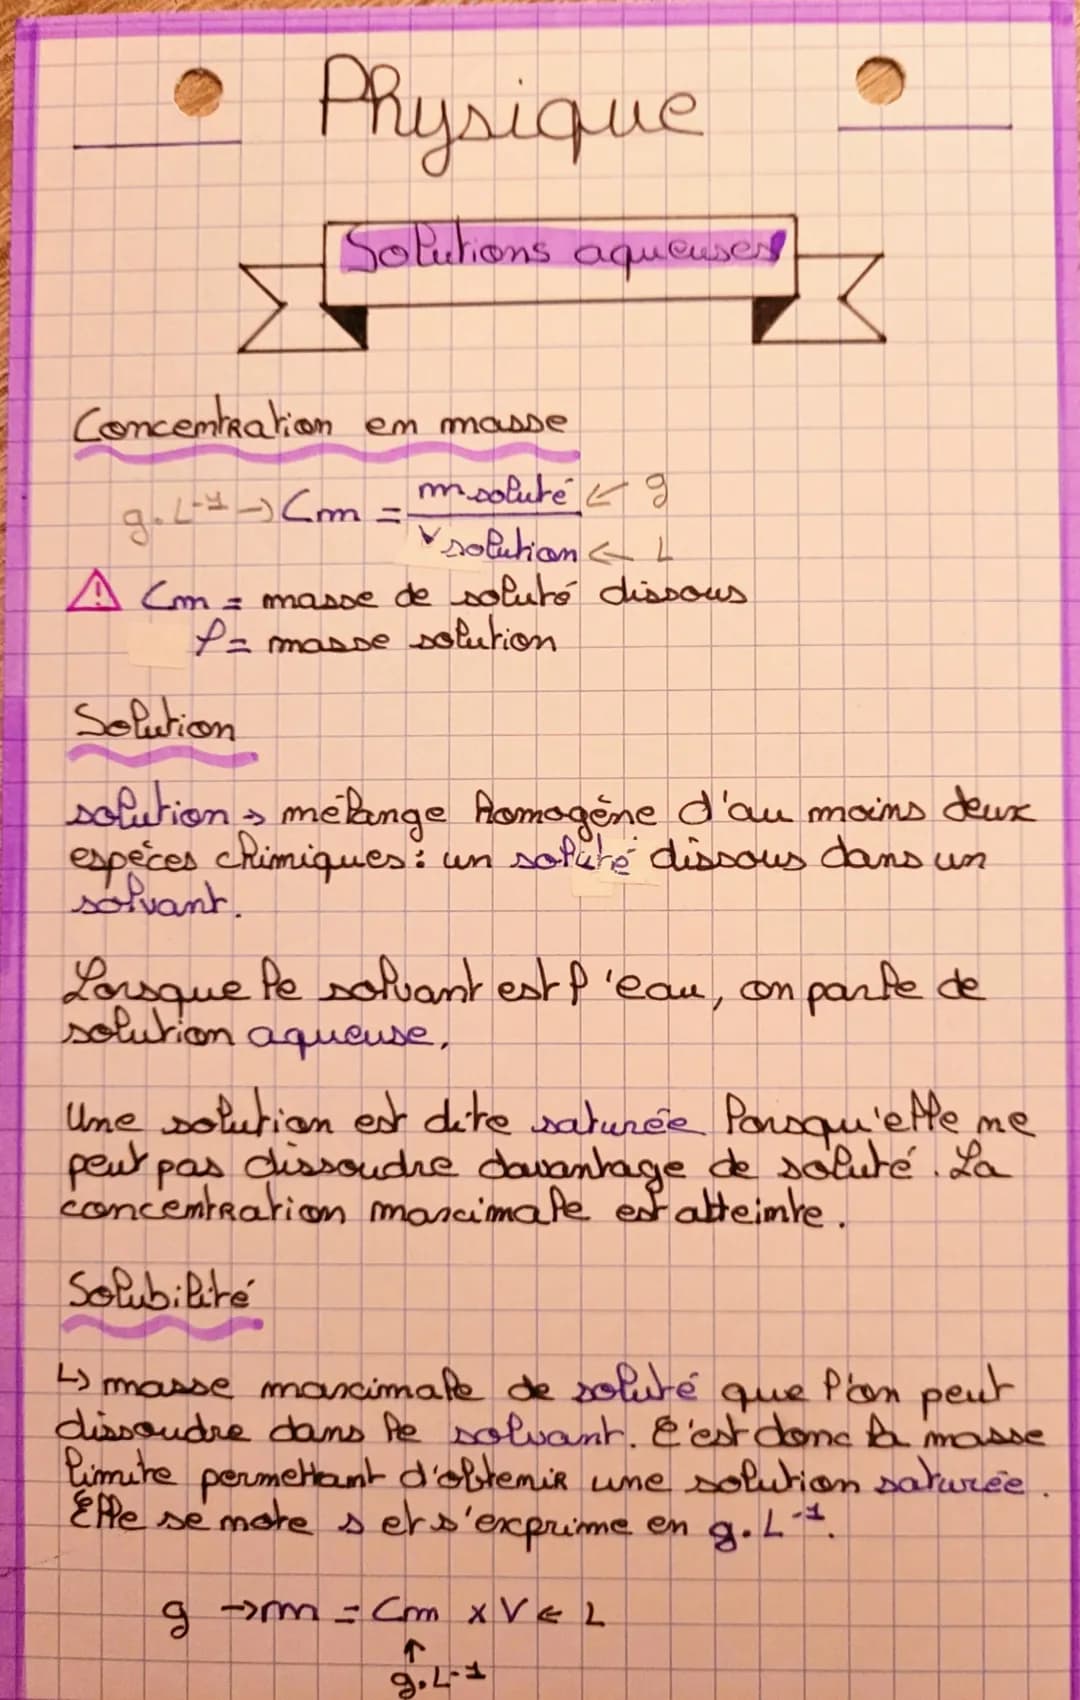 Physique
Solutions aqueuses
Concentration en masse
g.L⁻¹ → Cm = m soluté ← g
V solution ← L
⚠ Cm = masse de soluté dissous
ρ = masse solution
Solution
solution → mélange homogène d'au moins deux
espèces chimiques : un soluté dissous dans un
solvant.
Lorsque le solvant est l'eau, on parle de
solution aqueuse.
Une solution est dite saturée lorsqu'elle ne
peut pas dissoudre davantage de soluté. La
concentration maximale est atteinte.
Solubilité
↳ masse maximale de soluté que l'on peut
dissoudre dans le solvant. C'est donc la masse
limite permettant d'obtenir une solution saturée.
Elle se note s et s'exprime en g.L⁻¹.
g → m = Cm x V ← L
↑
g.L⁻¹